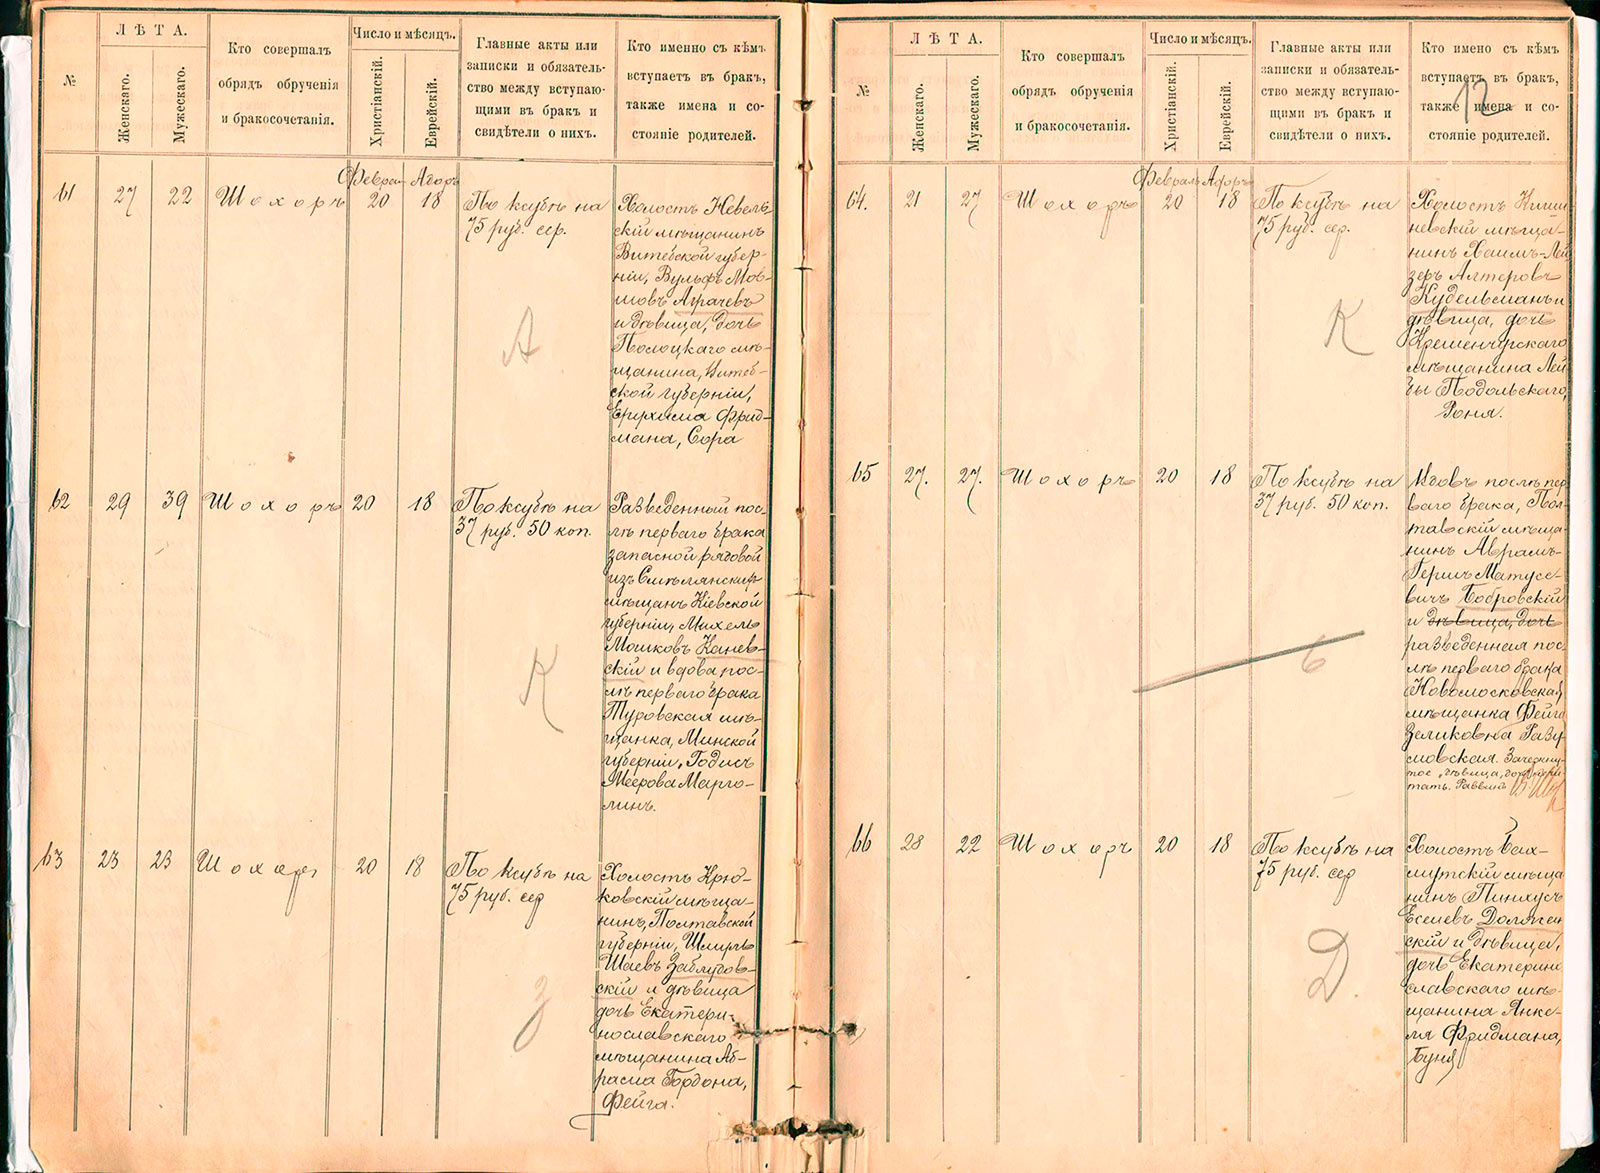 №
ЛѢТА.
Женскаго.
Мужескаго.
Кто совершалъ
обрядъ обрученія
и бракосочетанія.
Число и мѣсяцъ.
Христіанскій.
Еврейскій.
Главные акты или
записки и обязатель-
ство между вступаю-
щими въ бракъ и
свидѣтели о нихъ.
Кто именно съ кѣмъ
вступаетъ въ бракъ,
также имена и со-
стояніе родителей.
61
27
22
Шохоръ
Феврал
20
Адоръ
18
По ксубѣ на
75 руб. сер.
Холостъ Невель-
скій мѣщанинъ
Витебской губер-
ніи, Вульфъ Мов-
шовъ Аграчевъ
и дѣвица, дочь
Полоцкаго мѣ-
щанина, Витеб-
ской губерніи,
Ерухима Фрид-
мана, Сора
А
62
29
39
Шохоръ
20
18
По ксубѣ на
37 руб. 50 коп.
Разведенный пос-
лѣ перваго брака
запасной рядовой
изъ Смѣлянскихъ
мѣщанъ Кіевской
губерніи, Михель
Мошковъ Канев-
скій и вдова пос-
лѣ перваго брака
Туровская мѣ-
щанка, Минской
губерніи, Годисъ
Меерова Марго-
линъ.
К
63
23
23
Шохоръ
20
18
По ксубѣ на
75 руб. сер
Холостъ Крю-
ковскій мѣща-
нинъ, Полтавской
губерніи, Шмуль
Шаевъ Заблудов-
скій и дѣвица
дочь Екатери-
нославскаго
мѣщанина Аб-
рама Гордона,
Фейга.
З
№
ЛѢТА.
Женскаго.
Мужескаго.
Кто совершалъ
обрядъ обрученія
и бракосочетанія.
Число и мѣсяцъ.
Христіанскій.
Еврейскій.
Главные акты или
записки и обязатель-
ство между вступаю-
щими въ бракъ и
свидѣтели о нихъ.
Кто имено съ кѣмъ
вступаетъ въ бракъ,
также имена и со-
стояніе родителей.
12
64.
21
27
Шохоръ
Февраль
20
Адоръ
18
По ксубѣ на
75 руб. сер.
Холостъ Киши
невскій мѣща-
нинъ Хаимъ-Лей
зеръ Алтеровъ
Кудельманъ и
дѣвица, дочь
Кременчугскаго
мѣщанина Лей
бы Подольскаго,
Роня.
К
65
27.
27.
Шохоръ
20
18
По ксубѣ на
37 руб. 50 коп.
Вдовъ послѣ пер
ваго брака, Пол-
тавскій мѣща-
нинъ Аврамъ-
Гершъ Матусе-
вичъ Бобровскій
и дѣвица, дочь
разведенная пос-
лѣ перваго брака
Новомосковская
мѣщанка Фейга
Зеликовна Разу
мовская. Зачеркну
тое „дѣвица, дочь
тать. Раввинъ
Б
66
28
22
Шохоръ
20
18
По ксубѣ на
75 руб. сер
Холостъ Бах-
мутскій мѣща
нинъ Пинхусъ
Есиевъ Должан
скій и дѣвица,
дочь Екатерино
славскаго мѣ-
щанина Янке-
ля Фридмана,
Буня
Д